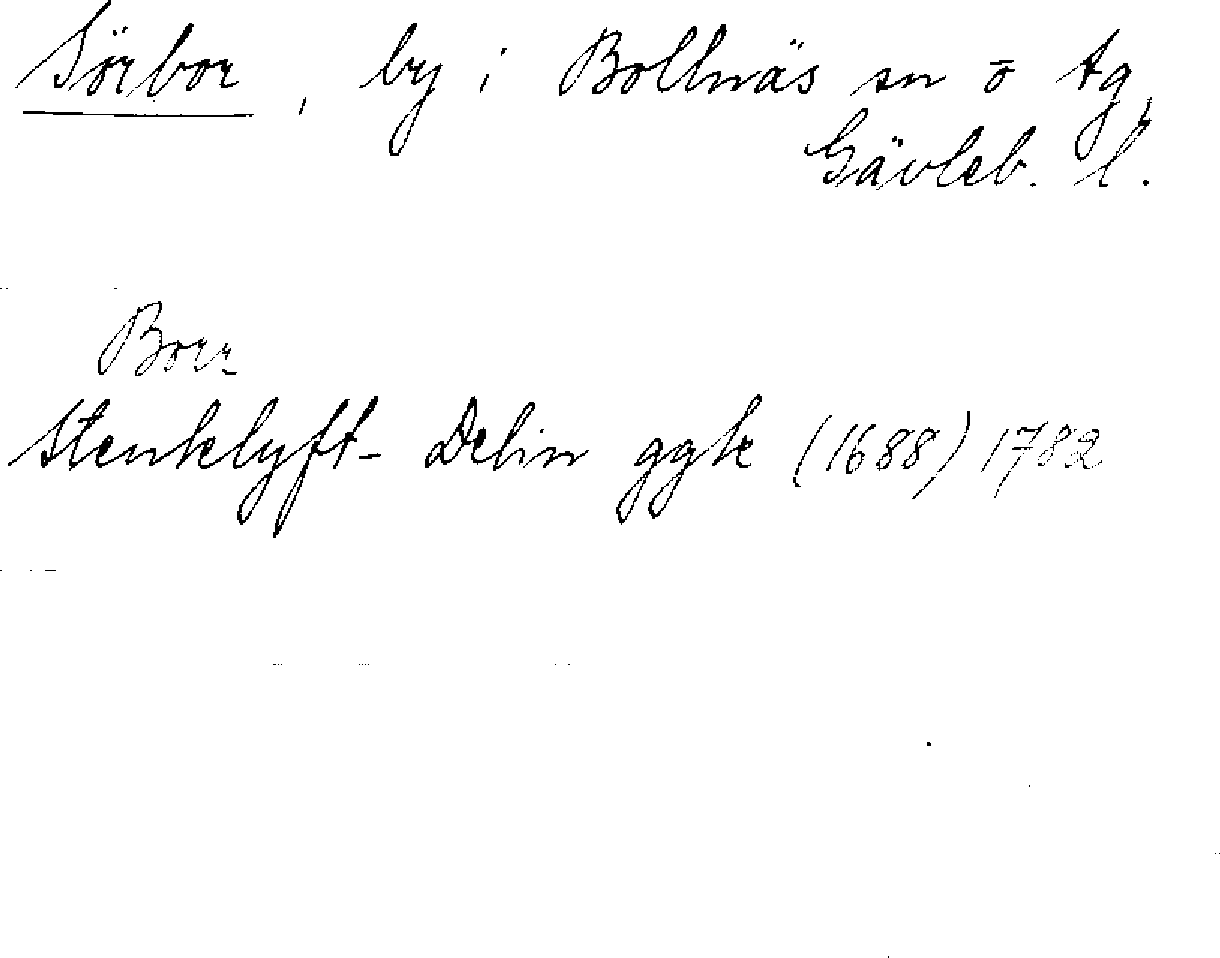 Sörbor, by i Bollnäs sn o tg,
Gävleb. l.
Borr
Stenklyft- Delin ggk (1688) 1782